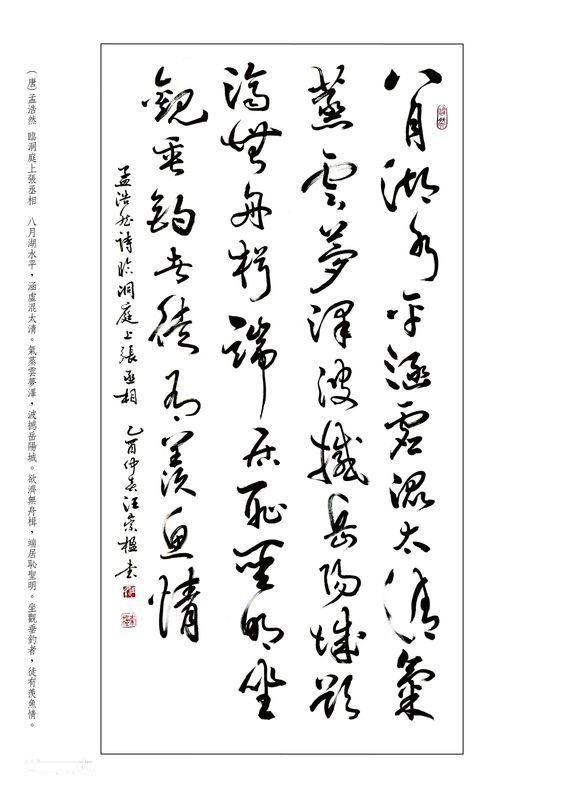 八月湖水平涵虛混太清氣
蒸雲夢澤波撼岳陽城欲
濟無舟楫端居恥聖明坐
觀垂釣者徒有羨魚情
孟浩然詩臨洞庭上張丞相 乙酉仲春汪崇楹書
(唐)孟浩然 臨洞庭上張丞相 八月湖水平，涵虛混太清。氣蒸雲夢澤，波撼岳陽城。欲濟無舟楫，端居恥聖明。坐觀垂釣者，徒有羨魚情。